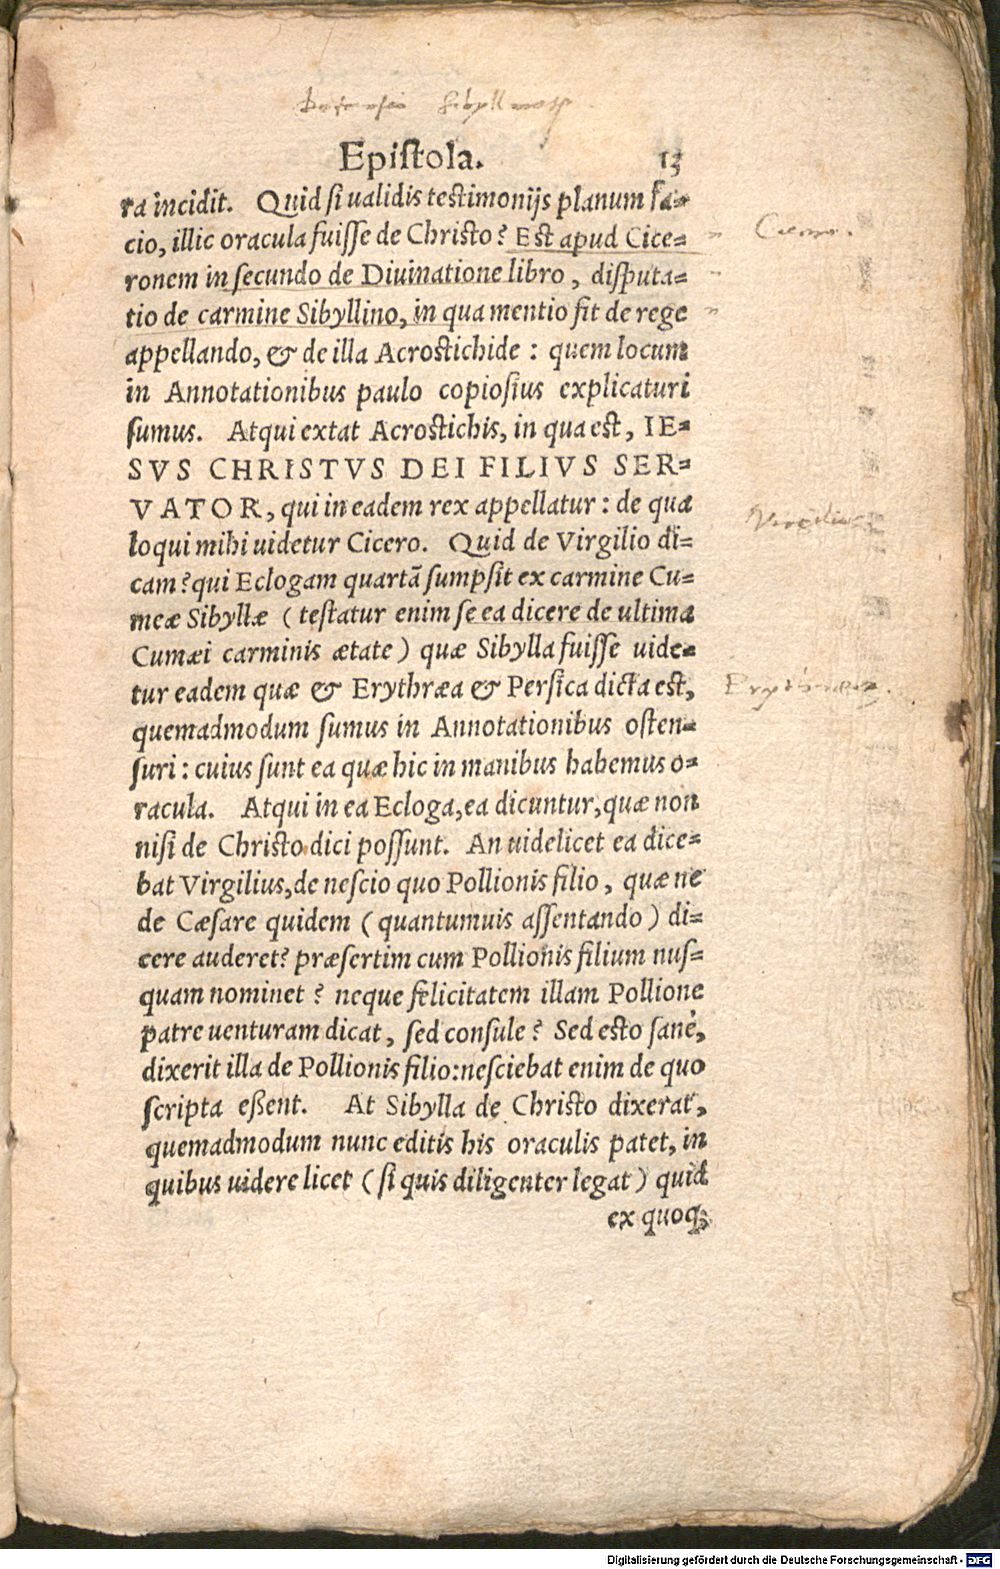 Defensio Sibyllinorum
Epistola. 13
ra incidit. Quid si ualidis testimonijs planum fa-
cio, illic oracula fuisse de Christo? Est apud Cice-
Cicero.
ronem in secundo de Diuinatione libro, disputa-
tio de carmine Sibyllino, in qua mentio fit de rege
appellando, & de illa Acrostichide: quem locum
in Annotationibus paulo copiosius explicaturi
sumus. Atqui extat Acrostichis, in qua est, IE-
SVS CHRISTVS DEI FILIVS SER-
VATOR, qui in eadem rex appellatur: de qua
Virgilius
loqui mihi uidetur Cicero. Quid de Virgilio di-
cam? qui Eclogam quartã sumpsit ex carmine Cu-
meæ Sibyllæ (testatur enim se ea dicere de ultima
Cumæi carminis ætate) quæ Sibylla fuisse uide-
tur eadem quæ & Erythræa & Persica dicta est,
Erythræa.
quemadmodum sumus in Annotationibus osten-
suri: cuius sunt ea quæ hic in manibus habemus o-
racula. Atqui in ea Ecloga, ea dicuntur, quæ non
nisi de Christo dici possunt. An uidelicet ea dice-
bat Virgilius, de nescio quo Pollionis filio, quæ ne
de Cæsare quidem (quantumuis assentando) di-
cere auderet? præsertim cum Pollionis filium nus-
quam nominet? neque felicitatem illam Pollione
patre uenturam dicat, sed consule? Sed esto sanè,
dixerit illa de Pollionis filio: nesciebat enim de quo
scripta eßent. At Sibylla de Christo dixerat,
quemadmodum nunc editis his oraculis patet, in
quibus uidere licet (si quis diligenter legat) quid
ex quoq;
Digitalisierung gefördert durch die Deutsche Forschungsgemeinschaft - DFG